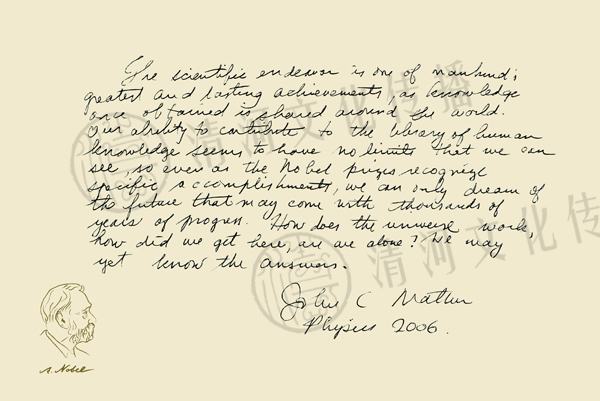 The scientific endeavor is one of mankind's
greatest and lasting achievements, as knowledge
once obtained is shared around the world.
Our ability to contribute to the library of human
knowledge seems to have no limits that we can
see, so even as the Nobel prizes recognize
specific accomplishments, we can only dream of
the future that may come with thousands of
years of progress. How does the universe work,
how did we get here, are we alone? We may
yet know the answers.
John C Mather
Physics 2006.
A. Nobel
清河文化传播
清河文化传